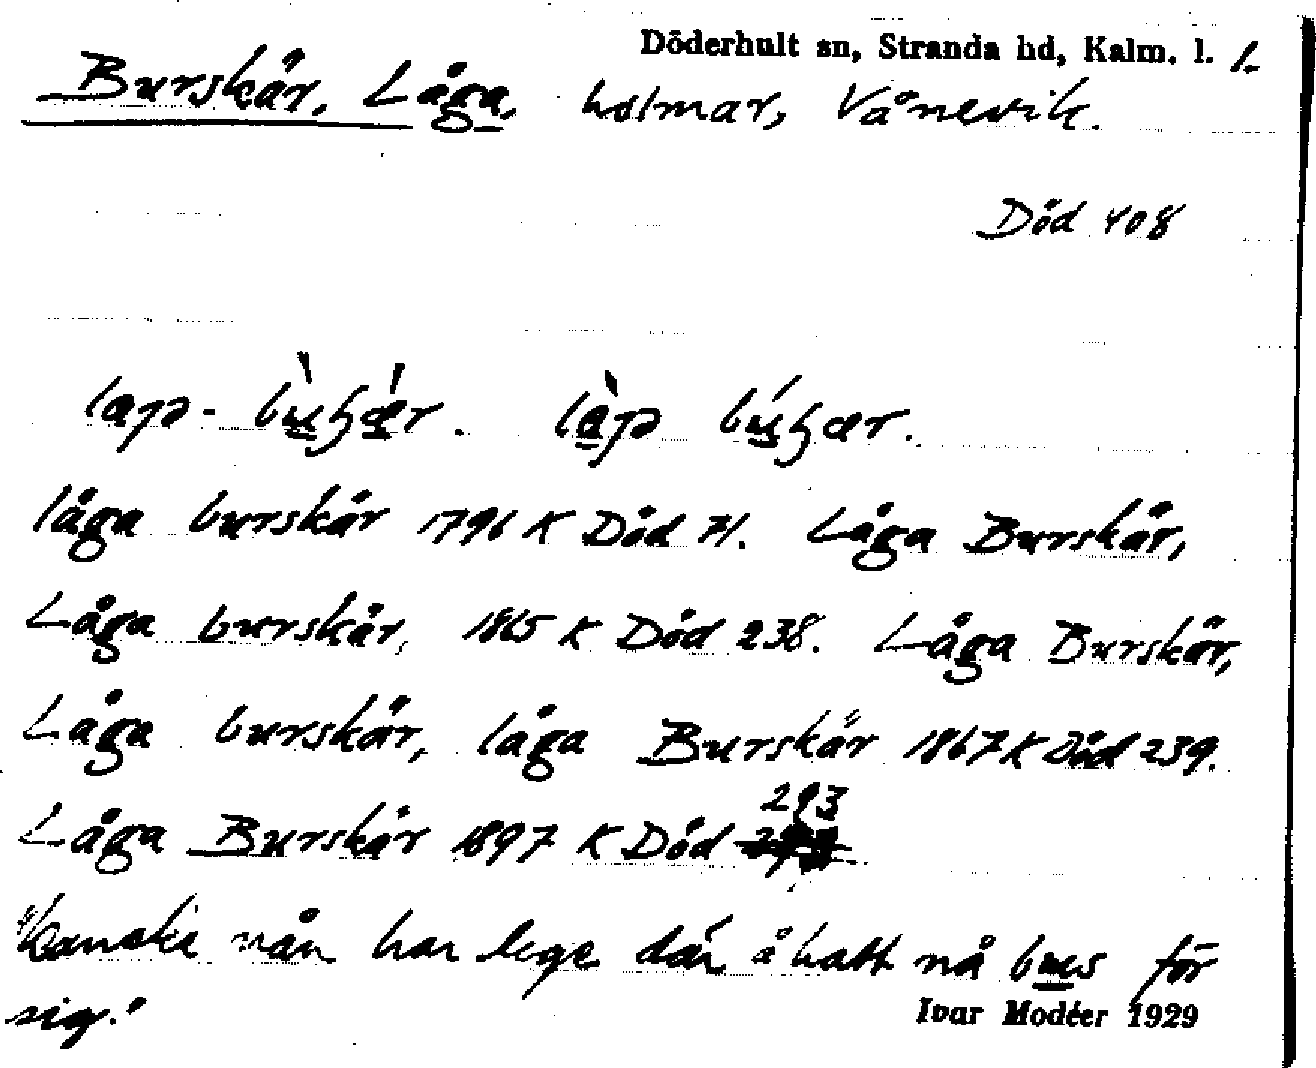 Döderhult sn, Stranda hd, Kalm. l. 1.
Burskär, Låga, holmar, Vånevik.
Död 408
låga burskär 1796 K Död 71. Låga Burskär,
Låga burskär, 1865 K Död 238. Låga Burskär,
Låga burskär, låga Burskär 1867 K Död 239.
293
Låga Burskär 1897 K Död
"kanske nån har lege där å hatt nå bus för
sig."
Ivar Modéer 1929